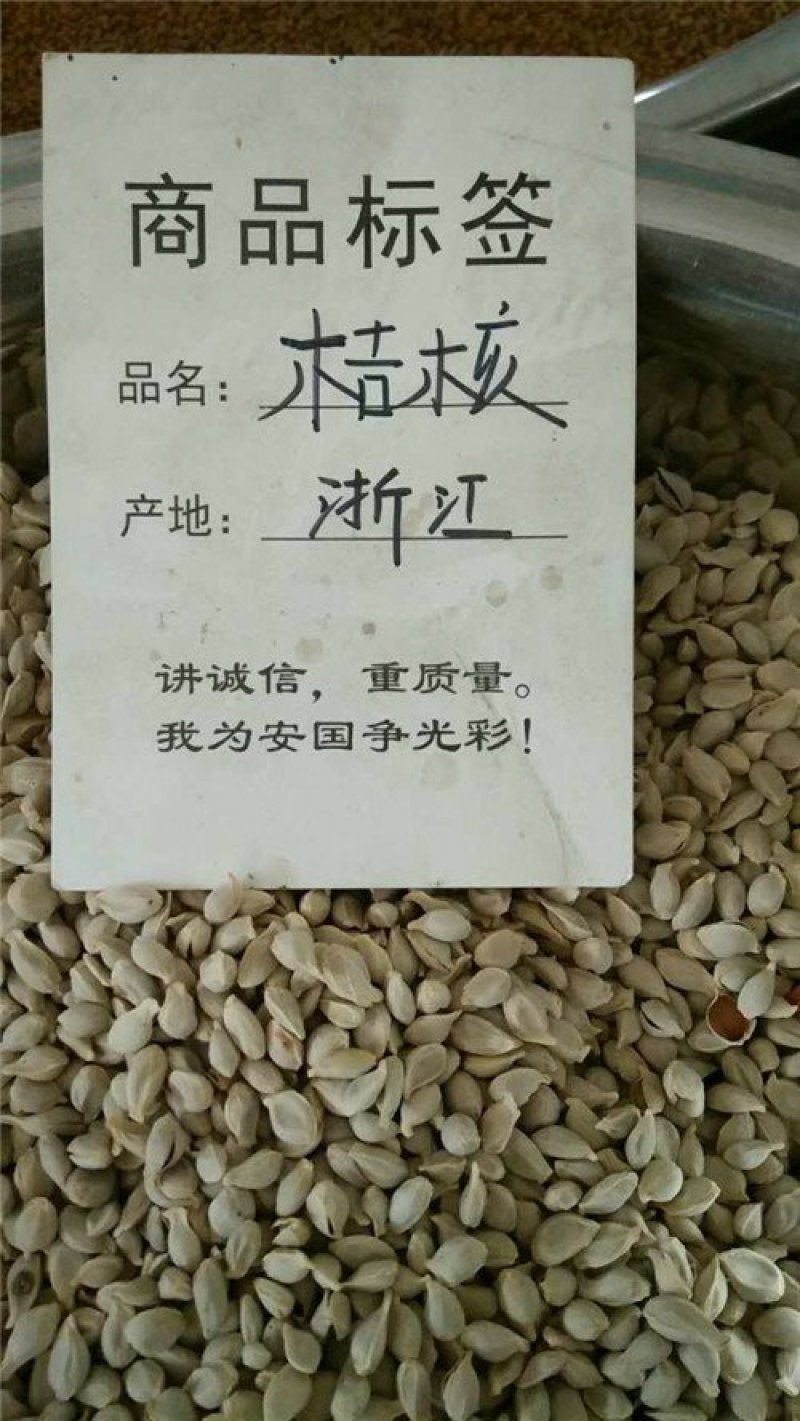 商品标签
品名：桔核
产地：浙江
讲诚信，重质量。
我为安国争光彩！